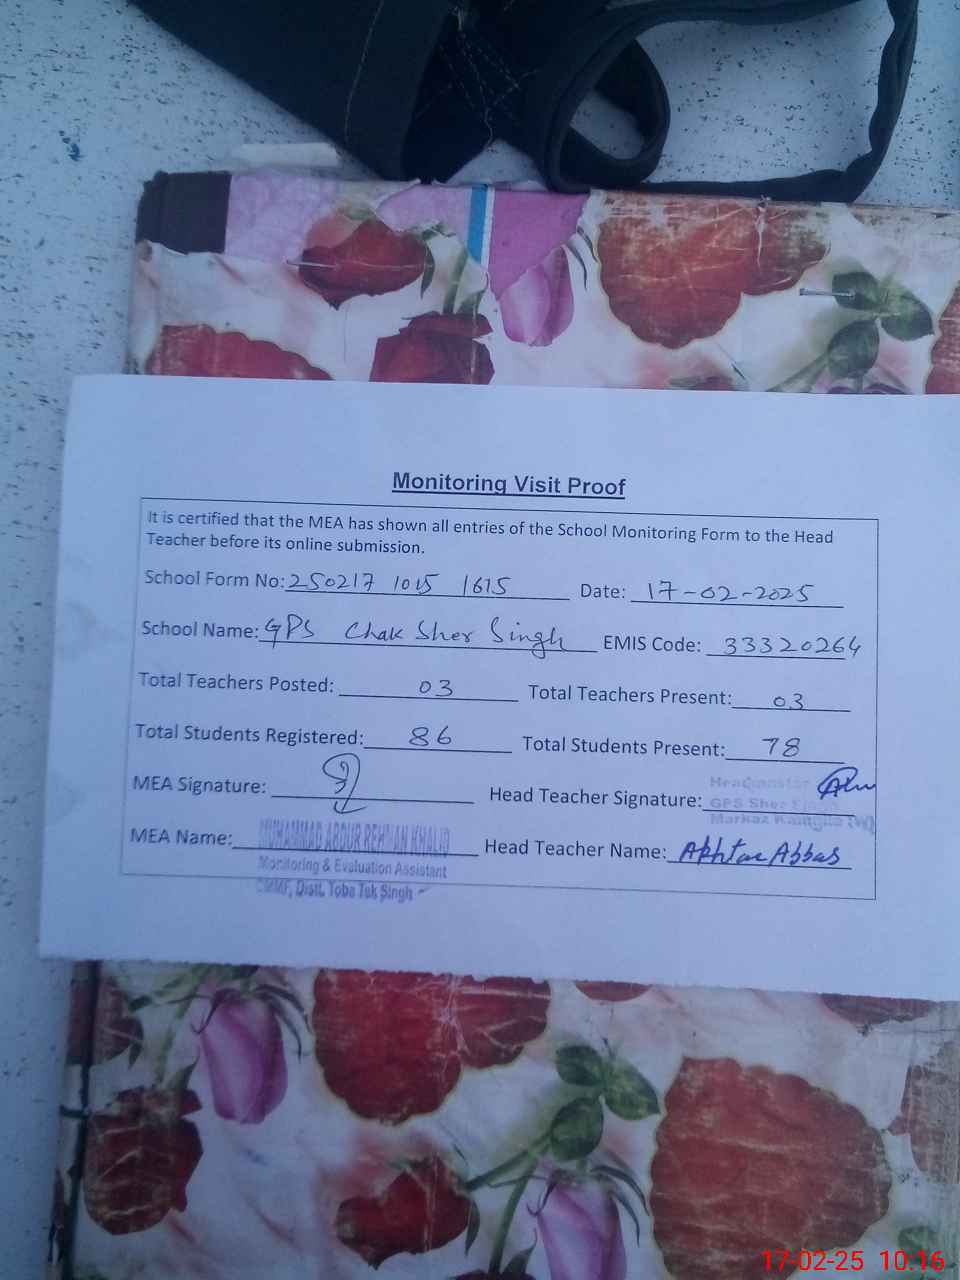 Monitoring Visit Proof
It is certified that the MEA has shown all entries of the School Monitoring Form to the Head
Teacher before its online submission.
School Form No: 250217 1015 1615 Date: 17-02-2025
School Name: GPS Chak Sher Singh EMIS Code: 33320264
Total Teachers Posted: 03 Total Teachers Present: 03
Total Students Registered: 86 Total Students Present: 78
MEA Signature: Head Teacher Signature:
Headmaster
GPS Sher
Markaz
MEA Name: MUHAMMAD ABDUR REHMAN KHALID Head Teacher Name: Akhtar Abbas
Monitoring & Evaluation Assistant
CMMF, Distt. Toba Tek Singh
17-02-25 10:16